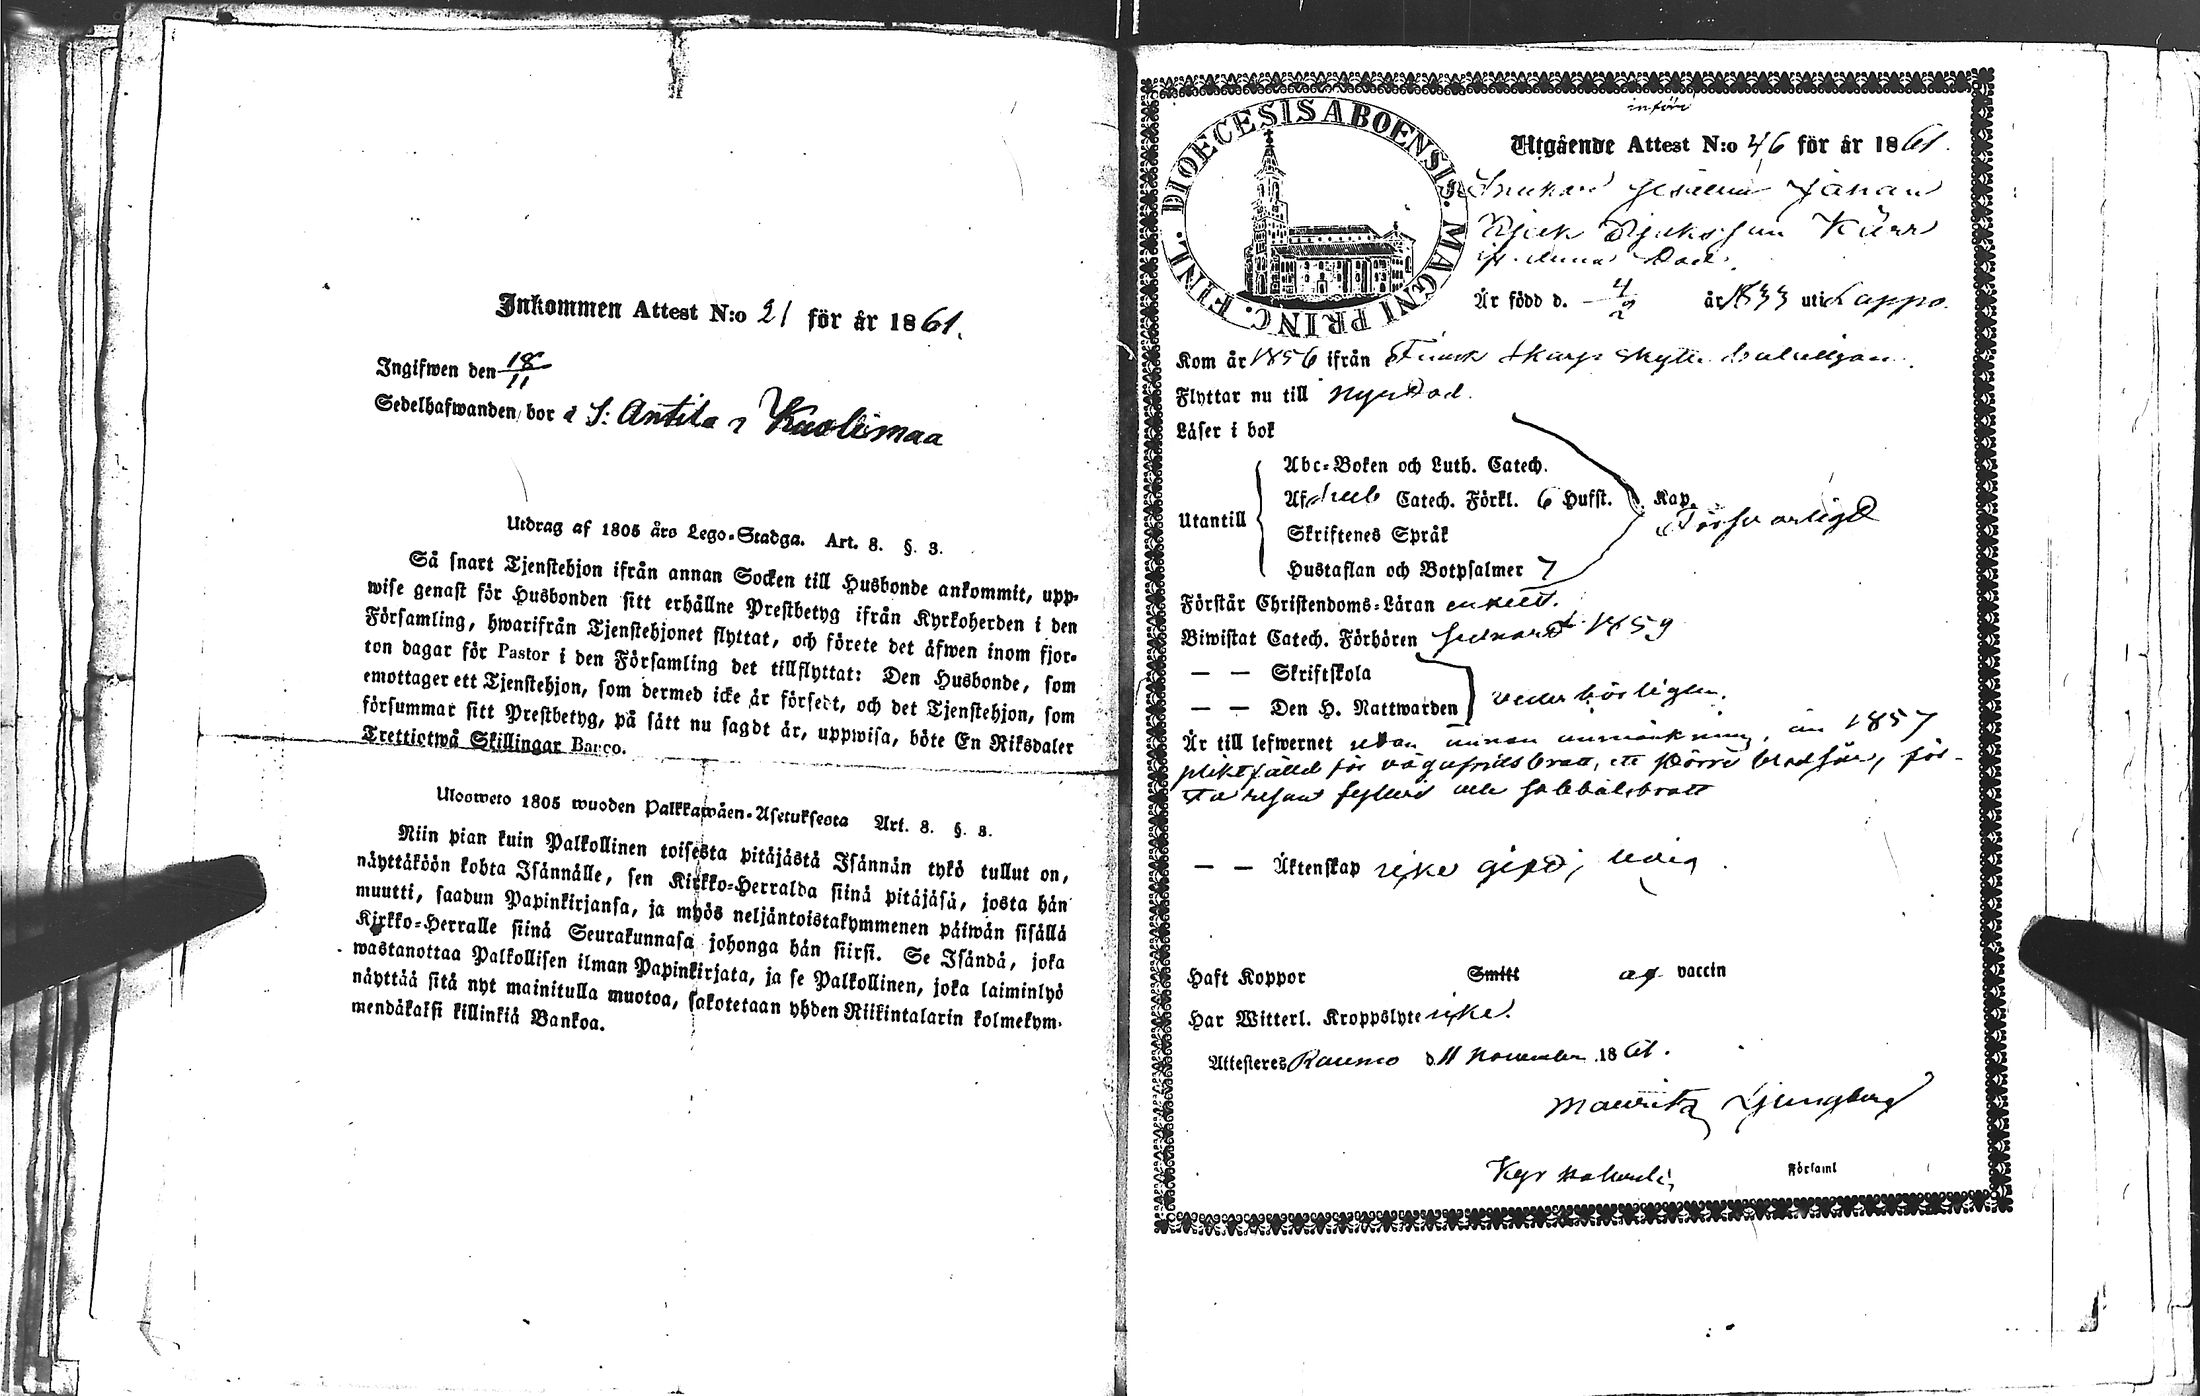 Inkommen Attest N:o 21 för år 1861.
Ingifwen den 18/11
Sedelhafwanden bor å S: Antila i Kuolimaa
Utdrag af 1805 års Lego-Stadga. Art. 8. §. 3.
Så snart Tjenstehjon ifrån annan Socken till Husbonde ankommit, upp-
wise genast för Husbonden sitt erhållne Prestbetyg ifrån Kyrkoherden i den
Församling, hwarifrån Tjenstehjonet flyttat, och förete det äfwen inom fjor-
ton dagar för Pastor i den Församling det tillflyttat: Den Husbonde, som
emottager ett Tjenstehjon, som dermed icke är försedt, och det Tjenstehjon, som
försummar sitt Prestbetyg, på sätt nu sagdt är, uppwisa, böte En Riksdaler
Trettiotwå Skillingar Banco.
Ulosweto 1805 wuoden Palkkawäen-Asetuksesta Art. 8. §. 3.
Niin pian kuin Palkollinen toisesta pitäjästä Isännän tykö tullut on,
näyttäköön kohta Isännälle, sen Kirkko-Herralda siinä pitäjäsä, josta hän
muutti, saadun Papinkirjansa, ja myös neljäntoistakymmenen päiwän sisällä
Kirkko-Herralle siinä Seurakunnasa johonga hän siirsi. Se Isändä, joka
wastanottaa Palkollisen ilman Papinkirjata, ja se Palkollinen, joka laiminlyö
näyttää sitä nyt mainitulla muotoa, sakotetaan yhden Riikintalarin kolmekym-
mendäkaksi killinkiä Bankoa.
DIOECESIS ABOENSIS. MAGNI PRINC. FINL.
införd
Utgående Attest N:o 46 för år 1861.
Är född d. 4/2 år 1833 uti Lappo.
Kom år 1856 ifrån Finsk Skarpskytte bataljon.
Flyttar nu till Nystad.
Läser i bok
Abc-Boken och Luth. Catech.
Utantill
Af Catech. Förkl. 6 Hufst. Kap.
Försvarligt
Skriftenes Språk
Hustaflan och Botpsalmer 7
Förstår Christendoms-Läran enkelt.
Biwistat Catech. Förhören senast 1859
— — Skriftskola
— — Den H. Nattwarden vederbörligen.
Är till lefwernet utan annan anmärkning, än 1857
pliktfälld för vägafridsbrott, ett större blodsår, för-
sta resan fylleri och sabbatsbrott
— — Äktenskap icke gift, ledig
Haft Koppor Smitt af vaccin
Har Witterl. Kroppslyte icke.
Attesteras Raumo d. 11 November 1861.
Mauritz Ljungberg
Kyrkoherde i
Församl